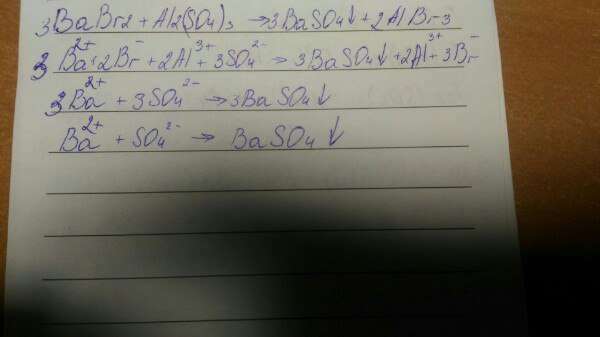 3BaBr2 + Al2(SO4)3 → 3BaSO4↓ + 2AlBr3
3Ba²⁺ + 2Br⁻ + 2Al³⁺ + 3SO4²⁻ → 3BaSO4↓ + 2Al³⁺ + 3Br⁻
3Ba²⁺ + 3SO4²⁻ → 3BaSO4↓
Ba²⁺ + SO4²⁻ → BaSO4↓